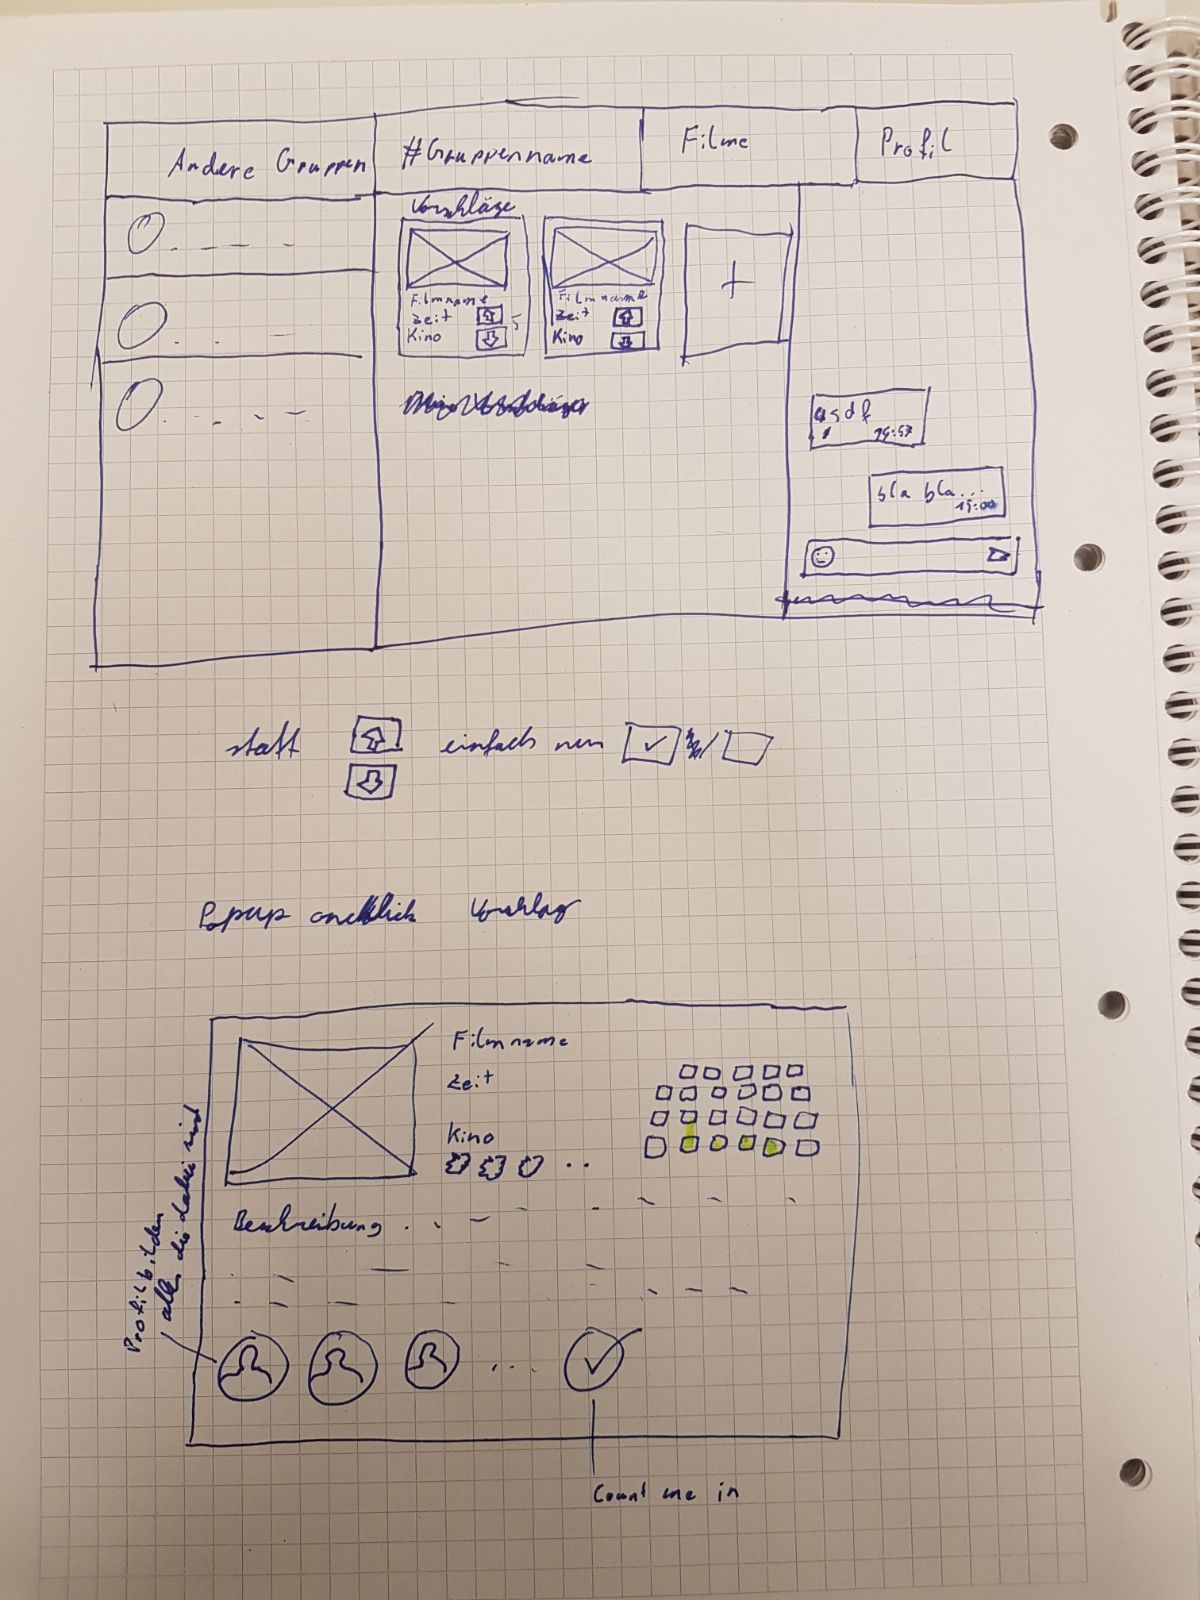 Andere Gruppen
#Gruppenname
Filme
Profil
Vorschläge
Filmname
Zeit
Kino
5
Filmname
Zeit
Kino
+
asdf
bla bla...
statt
einfach nur
/
Popup Vorschlag
Filmname
Zeit
Kino
Beschreibung
Profilbilder
alle die dabei sind
Count me in